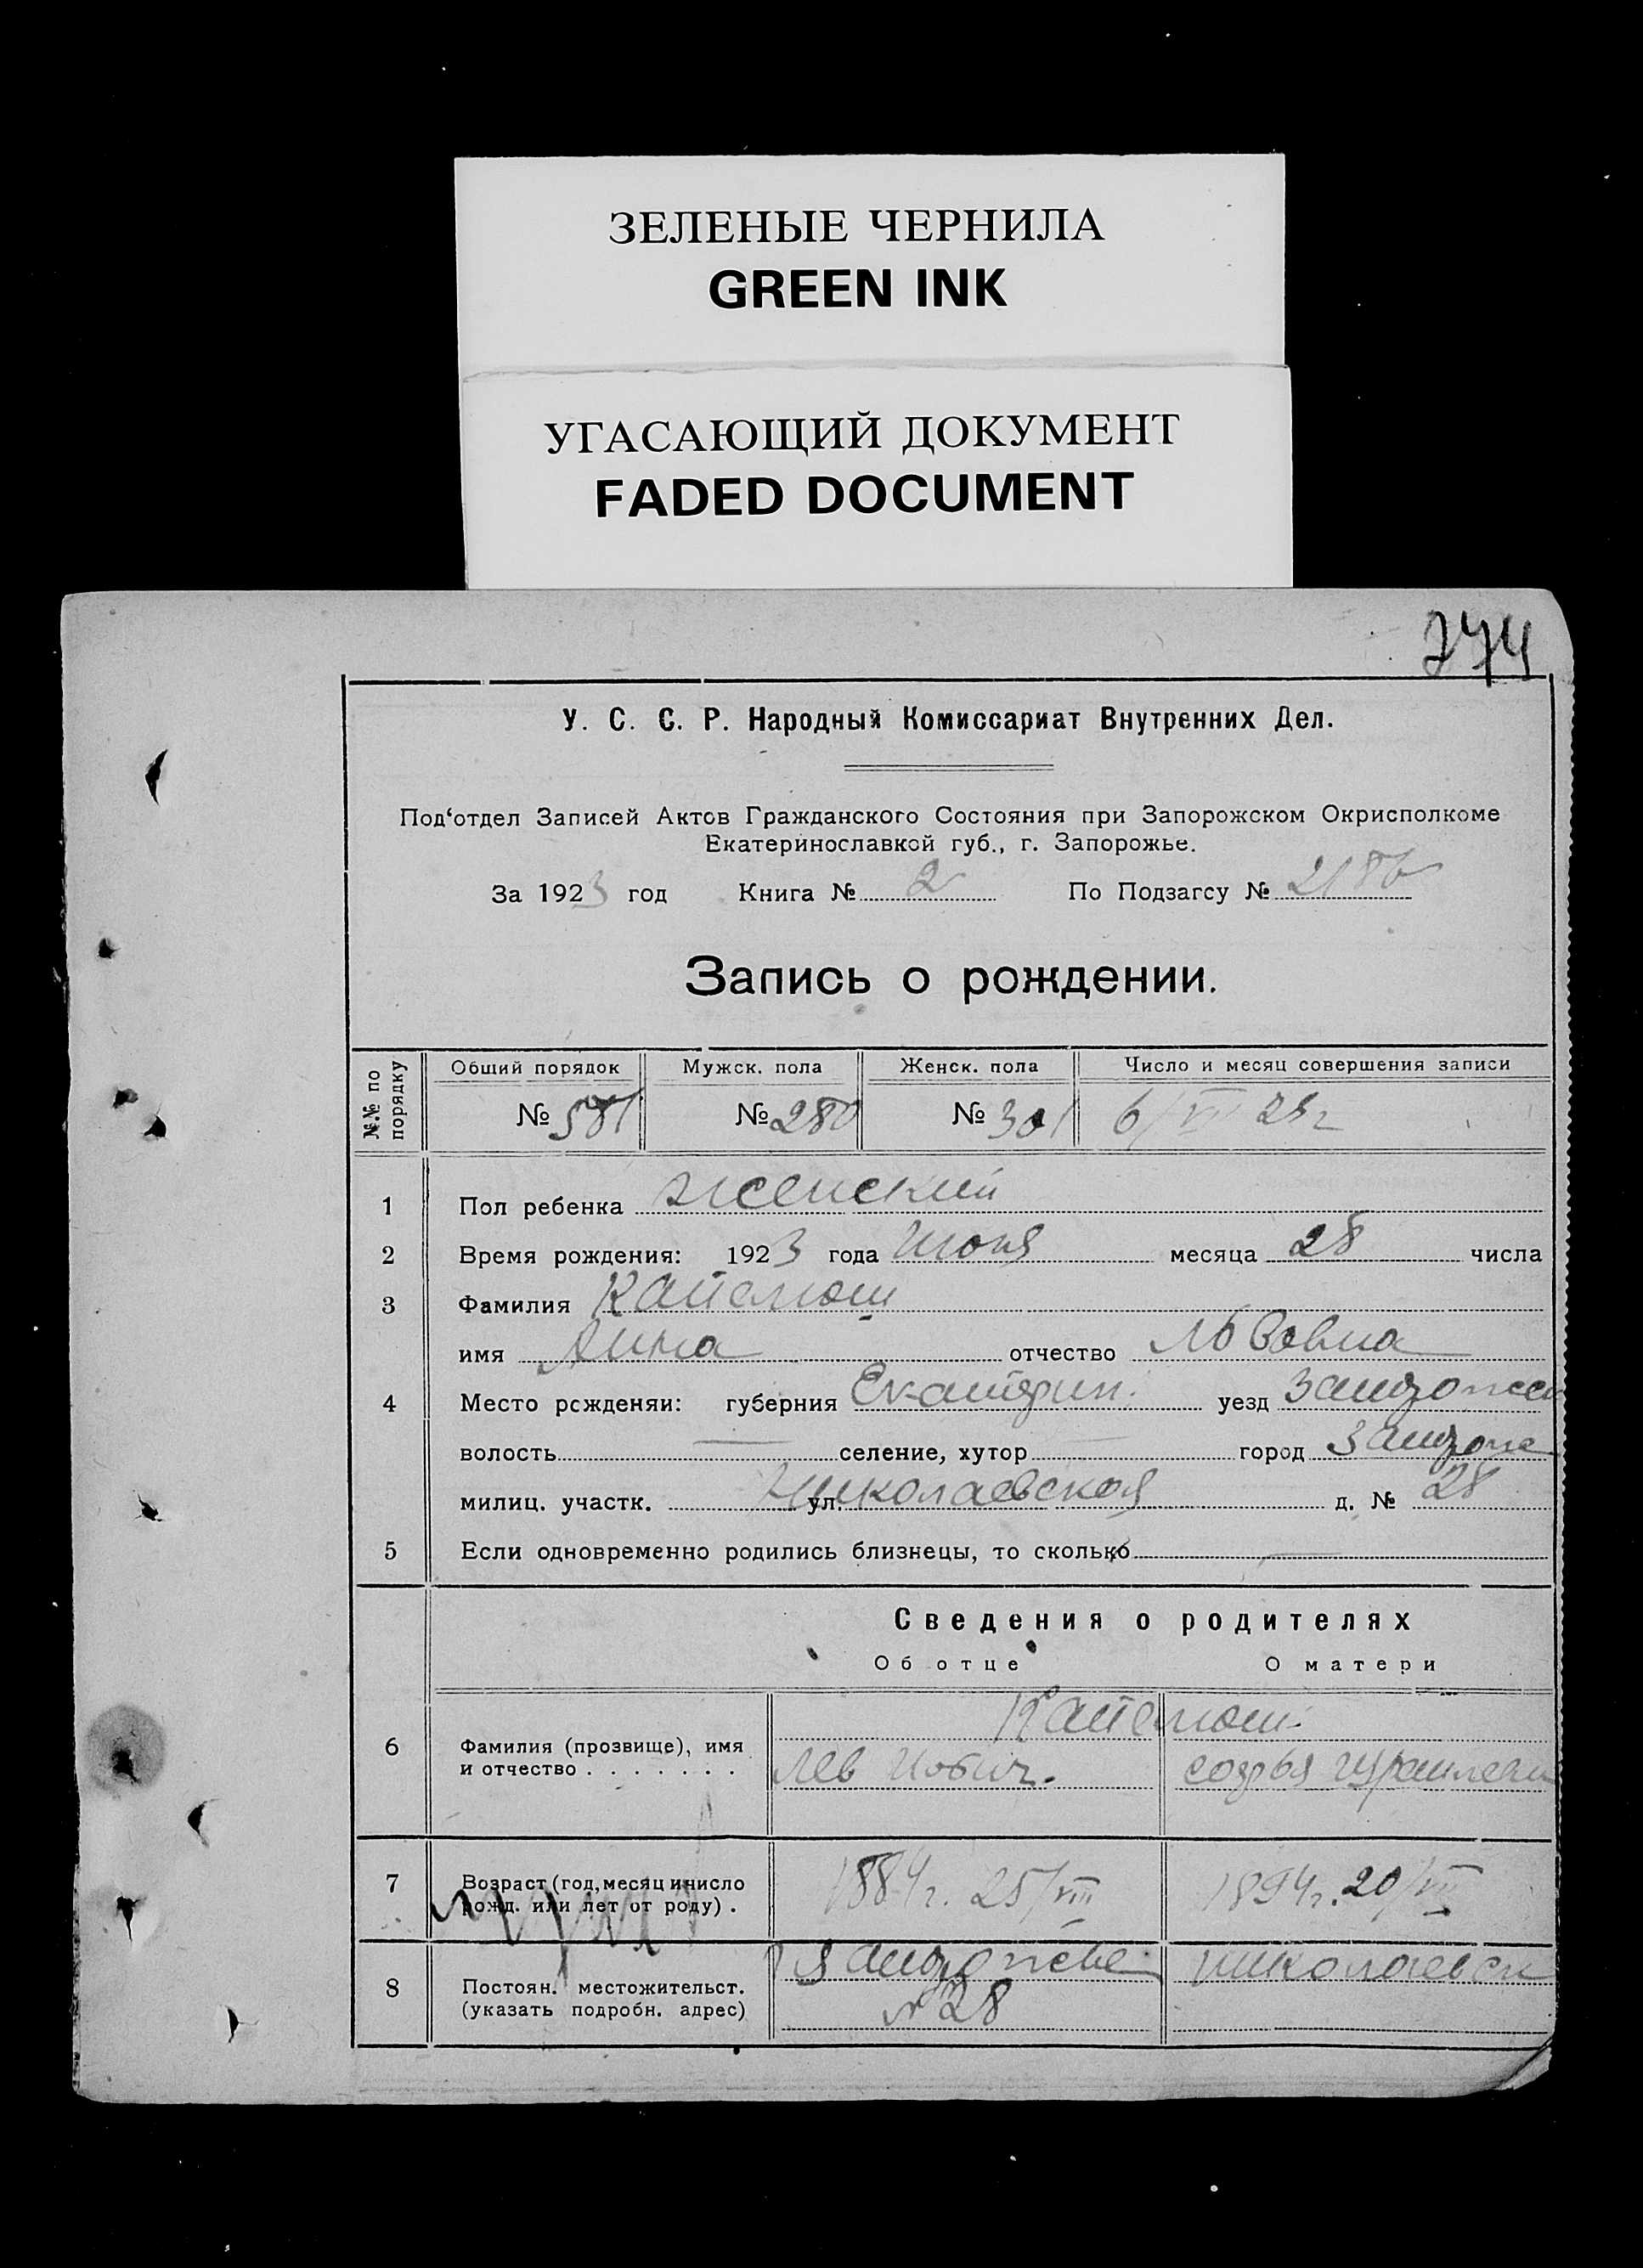 ЗЕЛЕНЫЕ ЧЕРНИЛА
GREEN INK
УГАСАЮЩИЙ ДОКУМЕНТ
FADED DOCUMENT
274
У. С. С. Р. Народный Комиссариат Внутренних Дел.
Под‘отдел Записей Актов Гражданского Состояния при Запорожском Окрисполкоме
Екатеринославкой губ., г. Запорожье.
За 1923 год Книга № 2 По Подзагсу №
Запись о рождении.
№№ по порядку Общий порядок Мужск. пола Женск. пола Число и месяц совершения записи
№ 581 № 280 № 301 6/VII 23 г
1 Пол ребенка женский
2 Время рождения: 1923 года Июня месяца 28 числа
3 Фамилия Капелюш
имя Анна отчество Львовна
4 Место рсжденяи: губерния Екатерин. уезд
волость селение, хутор город
милиц. участк. ул. Николаевская д. № 28
5 Если одновременно родились близнецы, то сколько
Сведения о родителях
Об отце О матери
Капелюш
6 Фамилия (прозвище), имя
и отчество . . . . . . . Лев
7 Возраст (год, месяц и число
рожд. или лет от роду) . 1884 г. 25/VIII 1894 г. 20/VIII
8 Постоян. местожительст.
(указать подробн. адрес) № 28